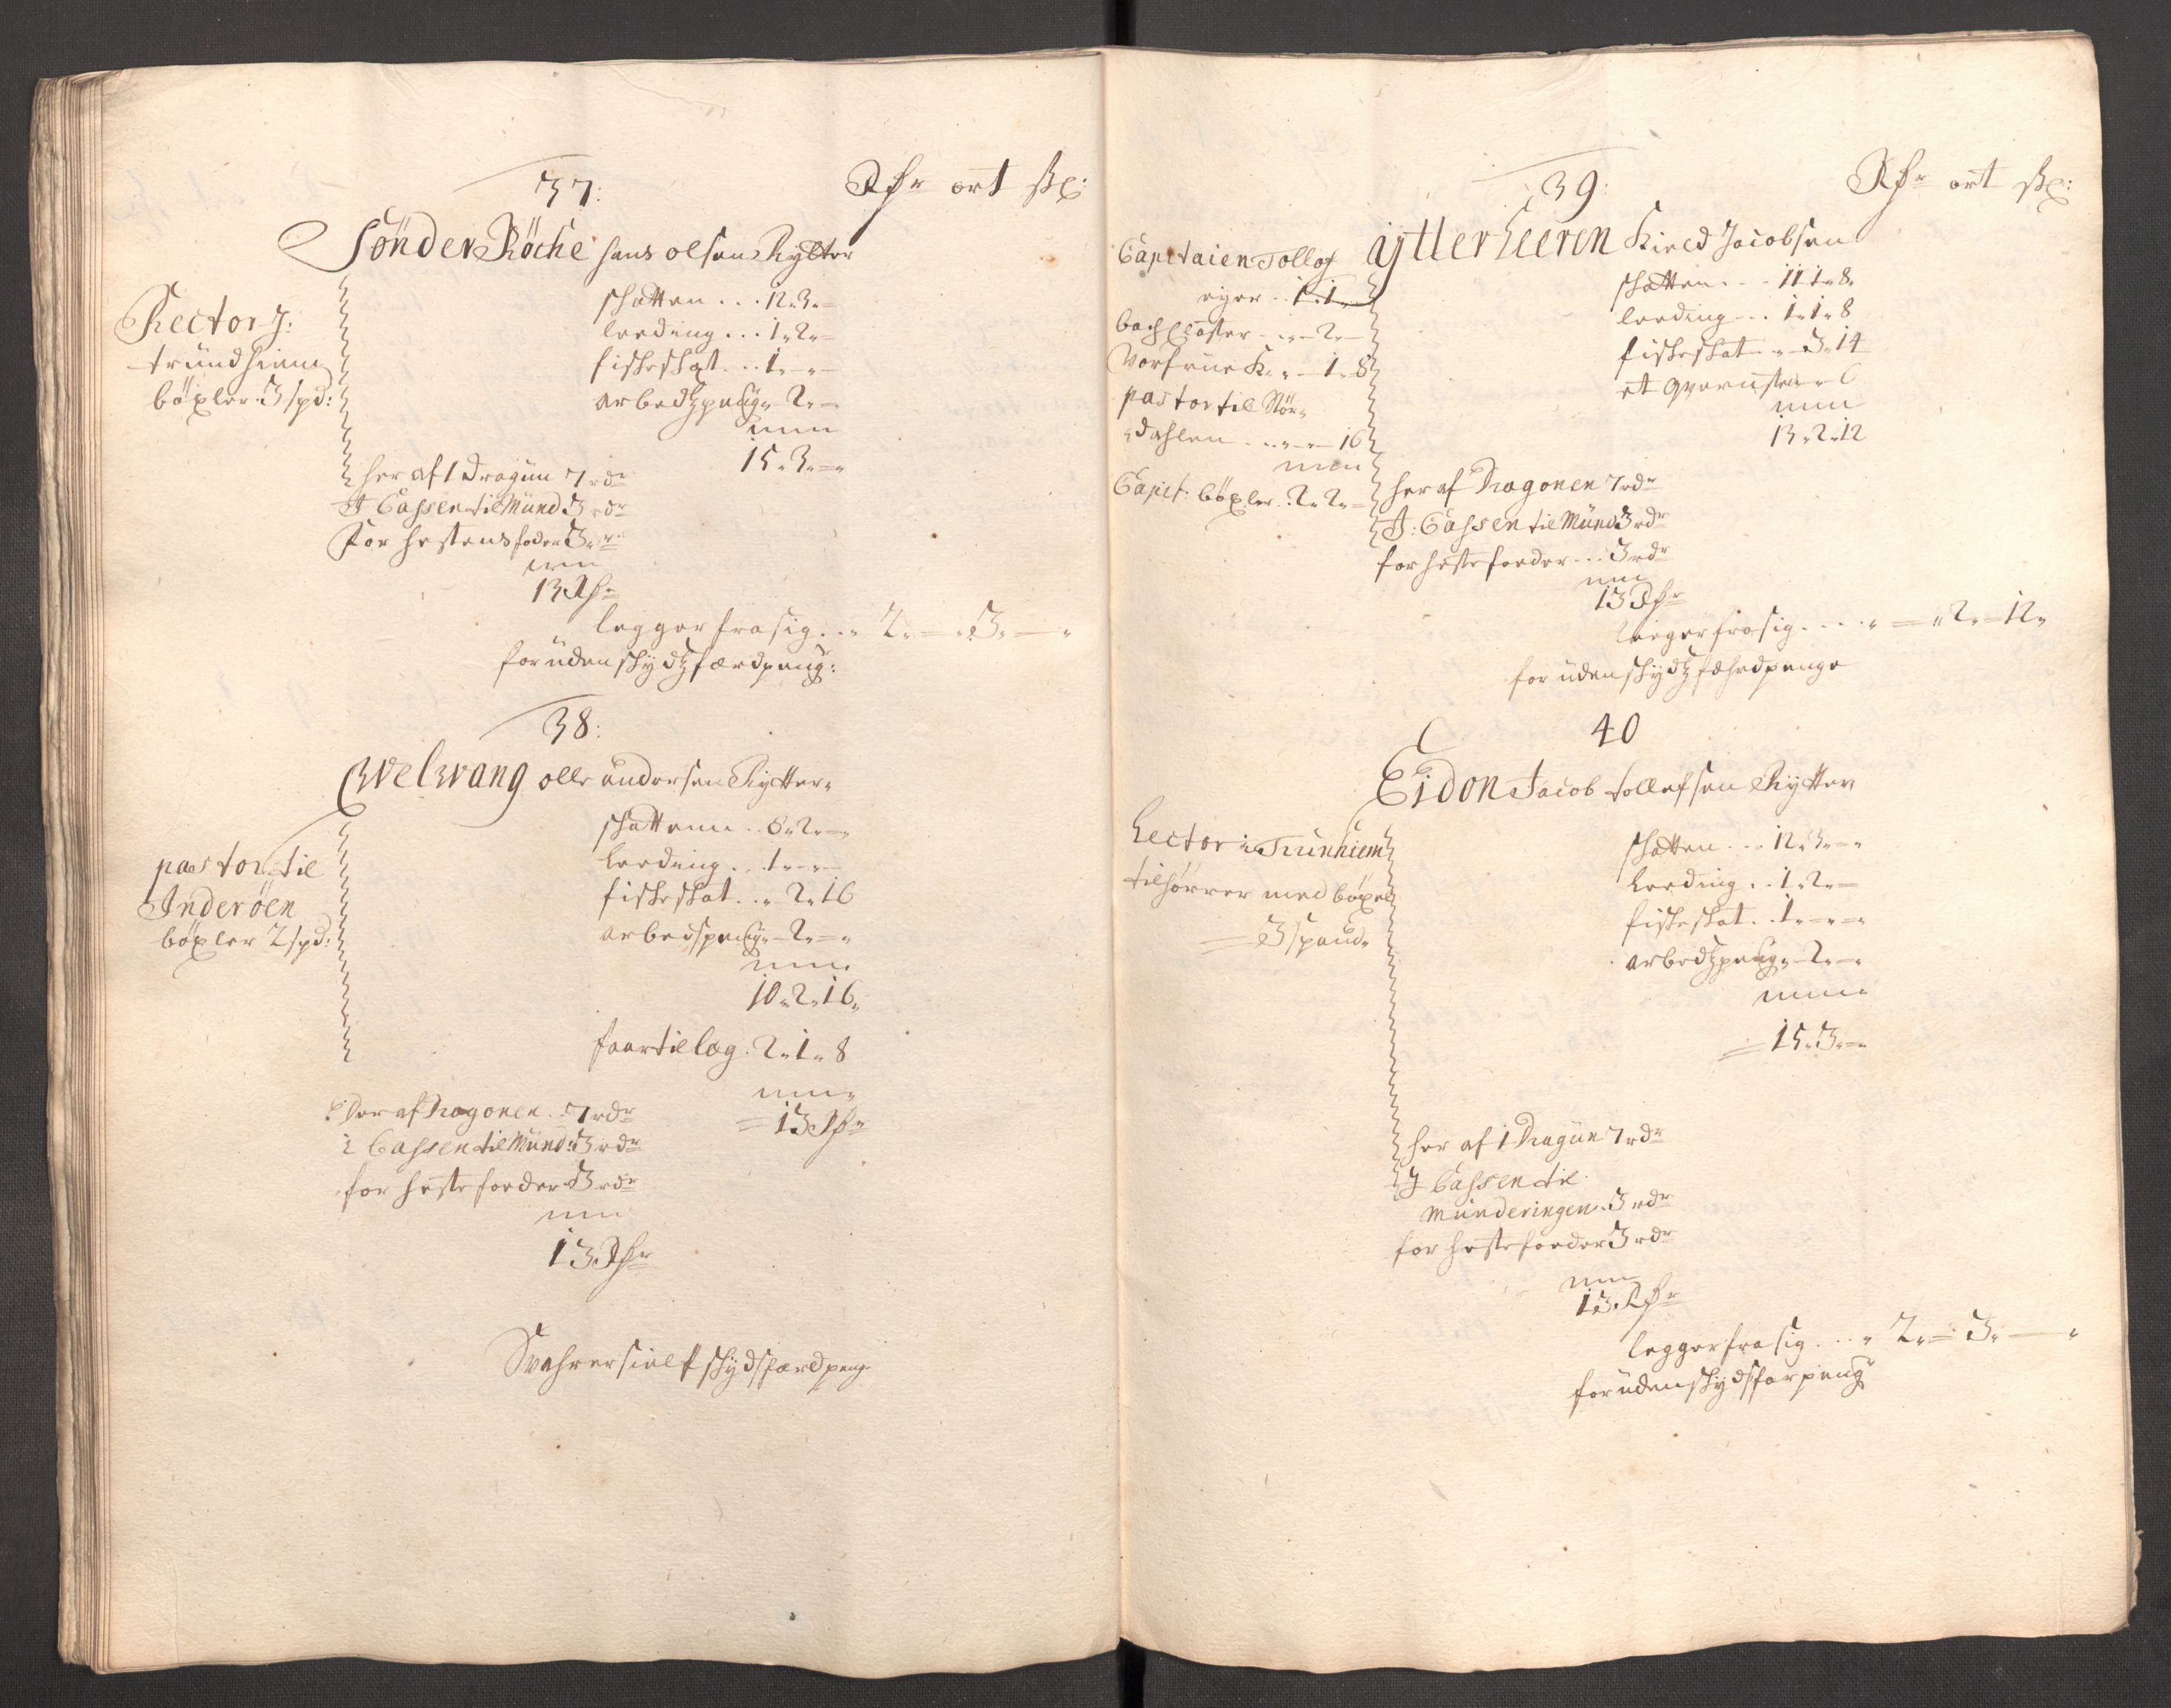 37:
Rdr ort sk:
Sönder Röche hans olsen Rytter
Rector J:
trundhiem
böxler 3 spd:
skatten . . . 12 . 3 . –
leeding . . . 1 . 2 . –
fiskeskat . . . 1 . – . –
arbedtzpeng . 2 . –
15 . 3 . –
her af 1 Dragun 7 rdr
J Cassen til Mund 3 rdr
For hestens foder 3 . –
13 Rdr
legger fra sig . . . 2 . – . 3 . –
foruden skydtzfærdpeng:
38:
Qvelvang olle andersen Rytter
pastor til
Inderöen
böxler 2 spd:
skatten . . 8 . 2 . –
leeding . . 1 . – . –
fiskeskat . . . 2 . 16
arbedspeng . 2 . – .
10 . 2 . 16 .
faar tillæg . 2 . 1 . 8
= 13 Rdr
Der af Dragonen . 7 rdr
i Cassen til Mund: 3 rdr
for heste foeder 3 rdr
13 Rdr
Svahrer sielf skydsfærdpeng
39:
Rdr ort sk:
ytterheeren Kield Jacobsen
Capitaien Tollof
eyer . . 1 . 1 . –
bachCloster . . . 2 . –
Vorfrue K. . – 1 . 8
pastor til Stör-
dahlen . . . . – 16
Capt: böxler . 2 . 2 . –
skatten . . . 11 1 . 8 .
leeding . . . 1 . 1 . 8
fiskeskat . . 3 . 14
et qvernsted – 6
13 . 2 . 12
her af Dragonen 7 rdr
J: Cassen til Mund 3 rdr
for heste foeder . . . 3 rdr
13 Rdr
leeger fra sig . . . . – . 2 . – 12 .
for uden skydtz fæhrdpenge
40
Eidon Jacob tollefsen Rytter
Lector i Trunhiem
tilhörrer med böxel
= 3 spand .
skatten . . . 12 . 3 . – .
Leeding . . 1 . 2 . –
fiskeskat . . 1 . – . – .
arbedtzpeng . 2 . – .
= 15 . 3 . – .
her af 1 Dragun 7 rdr
J Cassen til
Munderingen . 3 rdr
for heste foeder 3 rdr
13 Rdr
legger fra sig . . . 2 . – . 3 . –
foruden skydsfarpeng